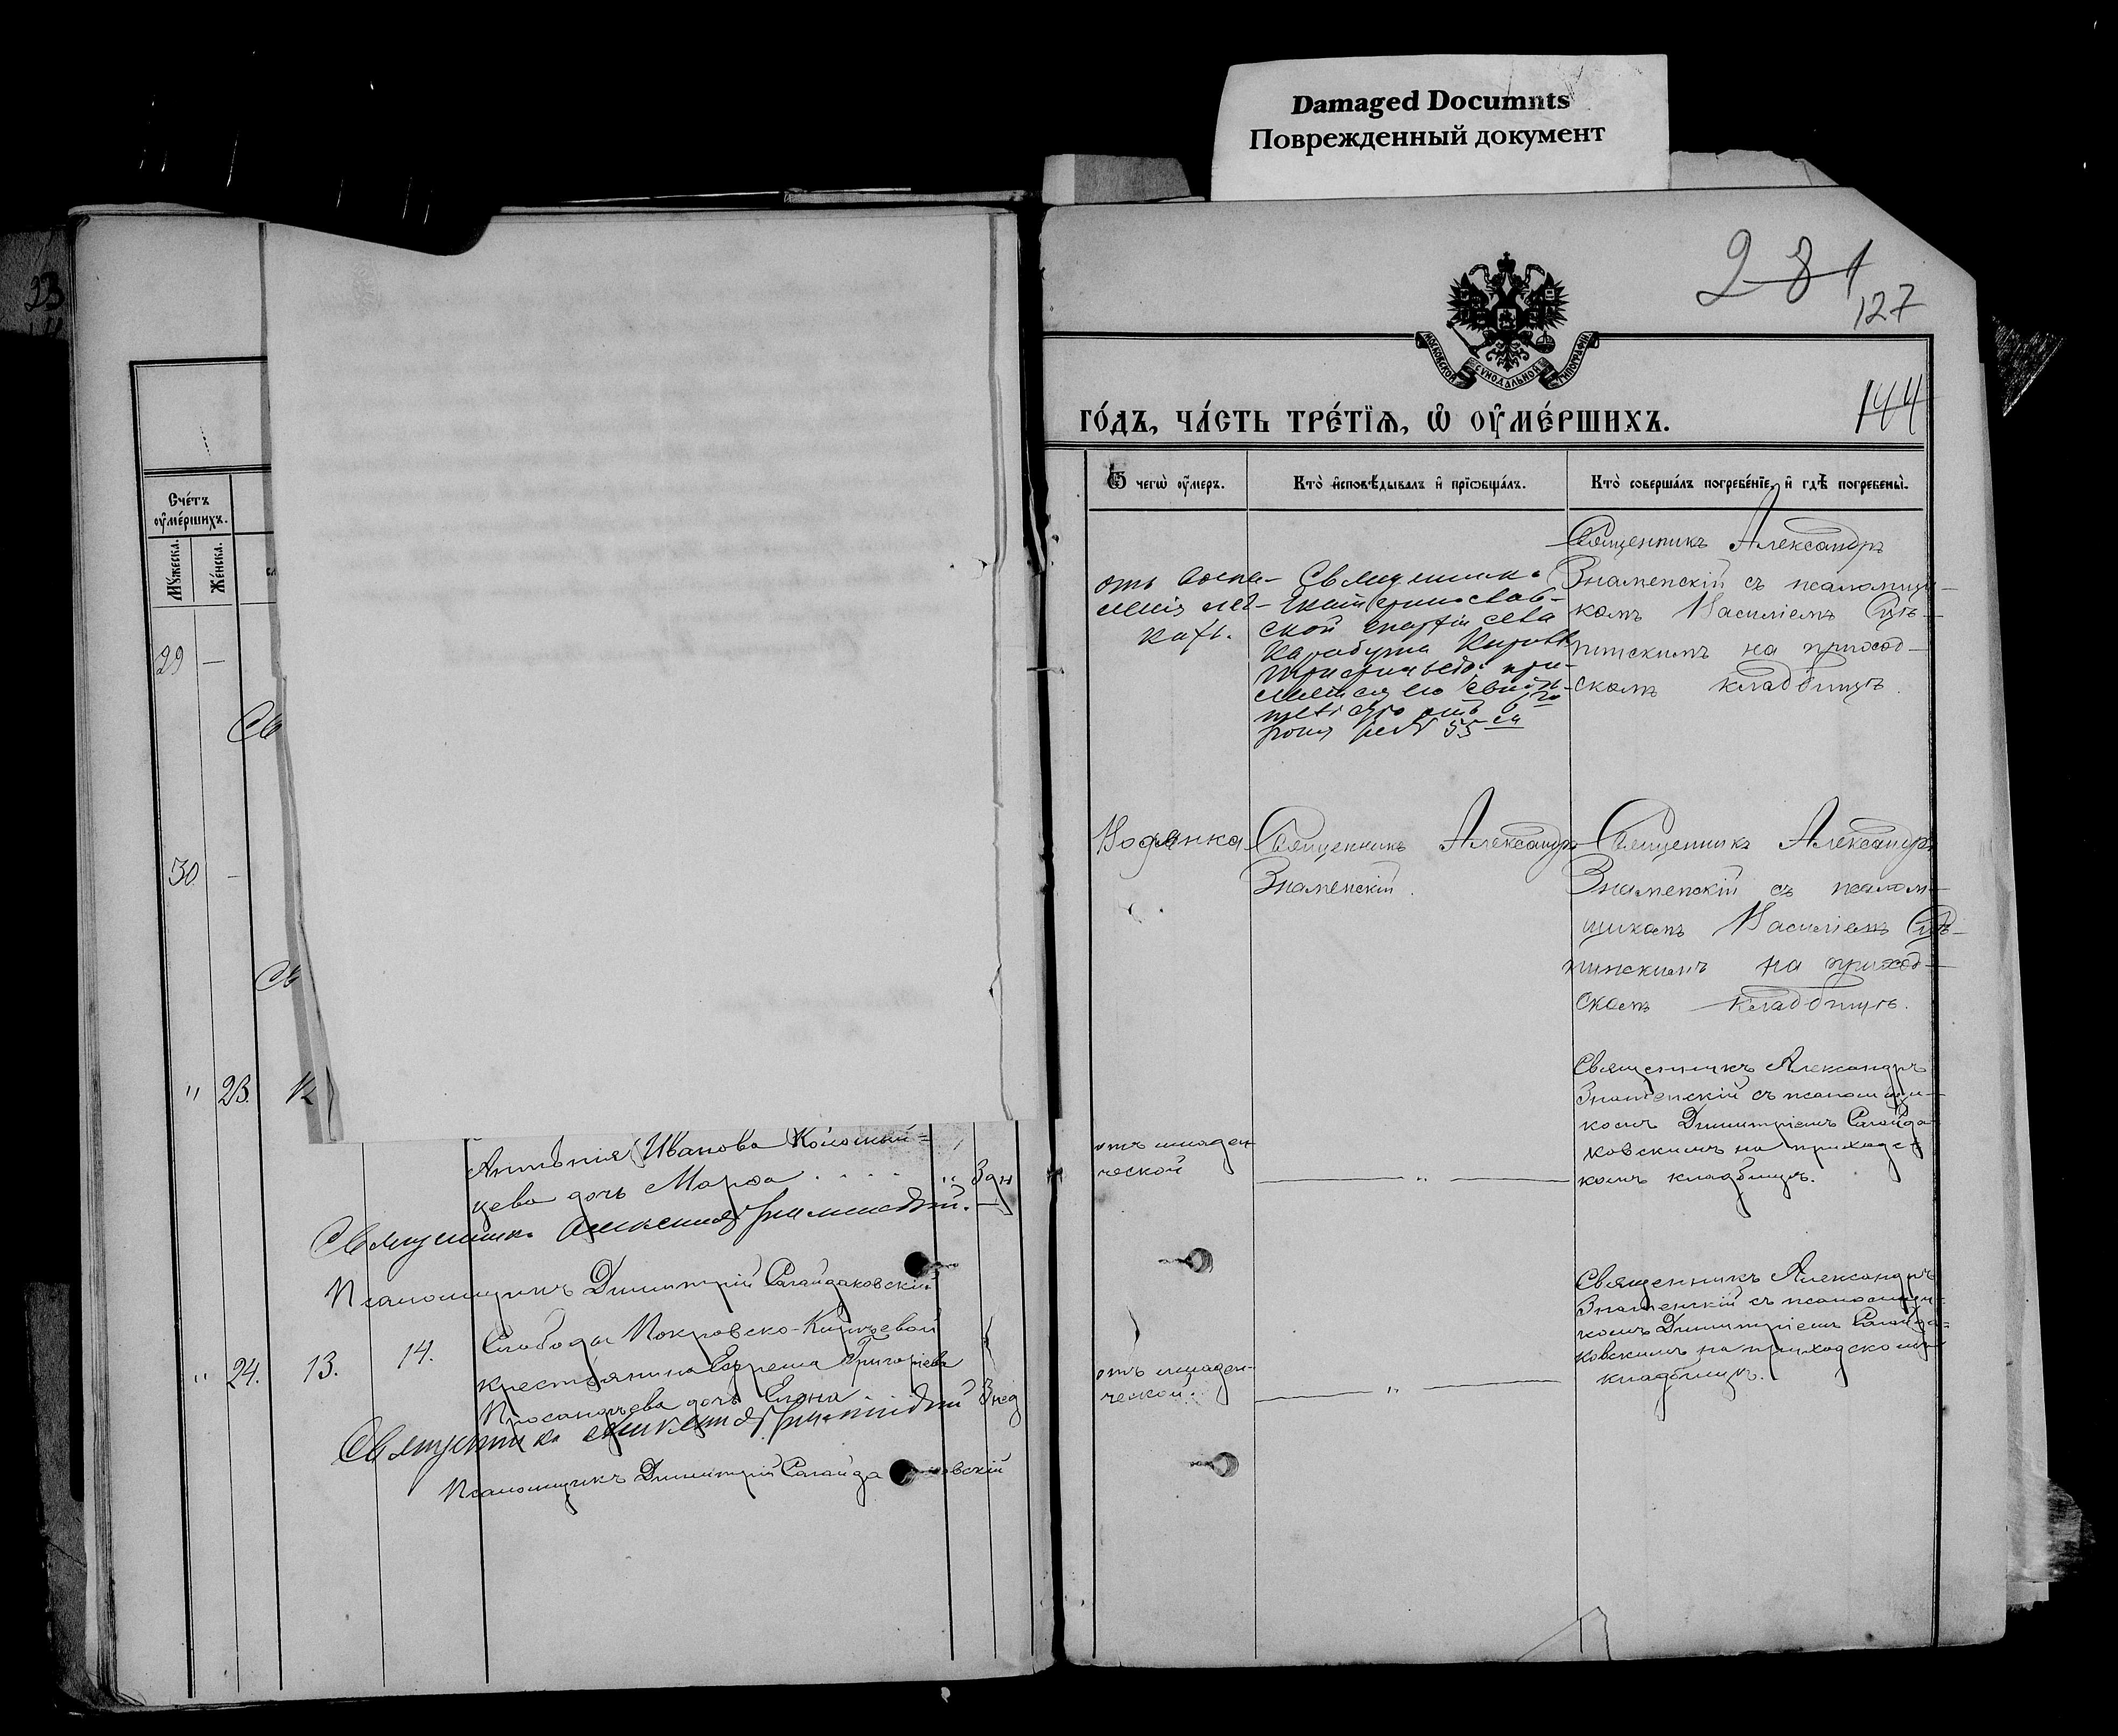 Damaged Documnts
Поврежденный документ
23
Счётъ
оумершихъ.
Мужеска.
Женска.
29 —
Св
30 —
Св
" 23. 12
Антонія Иванова Коломый-
цева дочь Марѳа . . . . " 3 дн
Священникъ Александръ Знаменскій.
Псаломщикъ Димитрій Сагайдаковскій
" 24. 13. 14. Слободы Покровско-Киреевой
крестьянина Ефрема Григорьева
дочь Елена 3 нед
Священникъ Александръ Знаменскій
Псаломщикъ Димитрій Сагайдаковскій
281
127
МОСКОВСКОЙ СѴНОДАЛЬНОЙ ТИПОГРАФІИ
144
ГО́ДЪ, ЧА́СТЬ ТРЕ́ТЇѦ, Ѡ ОУМЕ́РШИХЪ.
Ѿ чегѡ оумеръ.
Кто̀ исповѣдывалъ и прїѡбщалъ.
Кто̀ совершалъ погребе́нїе, и гдѣ погребены̀.
отъ воспа-
ленія лег-
кихъ.
Священникъ
Екатеринослав-
ской епархіи села
Священникъ Александръ
Знаменскій съ псаломщи-
комъ Василіемъ
на приход-
скомъ кладбищѣ.
Водянка
Священникъ Александръ
Знаменскій.
Священникъ Александръ
Знаменскій съ псалом-
щикомъ Василіемъ
на приход-
скомъ кладбищѣ.
отъ младен
ческой
— " —
Священникъ Александръ
Знаменскій съ псаломщи-
комъ Димитріемъ Сагайда-
ковскимъ на приходс-
комъ кладбищѣ.
отъ младен-
ческой.
— " —
Священникъ Александръ
Знаменскій съ псаломщи-
комъ Димитріемъ Сагайда-
ковскимъ на приходскомъ
кладбищѣ.